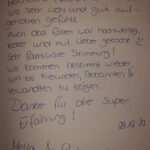 wir sehr wohl und gut auf-
gehoben gefühlt.
Auch das Essen war hochwertig,
lecker und mit Liebe gekocht
Sehr familiäre Stimmung!
Wir kommen bestimmt wieder,
um es Freunden, Bekannten &
Verwandten zu zeigen.
Danke für die super
Erfahrung!
28.12.12